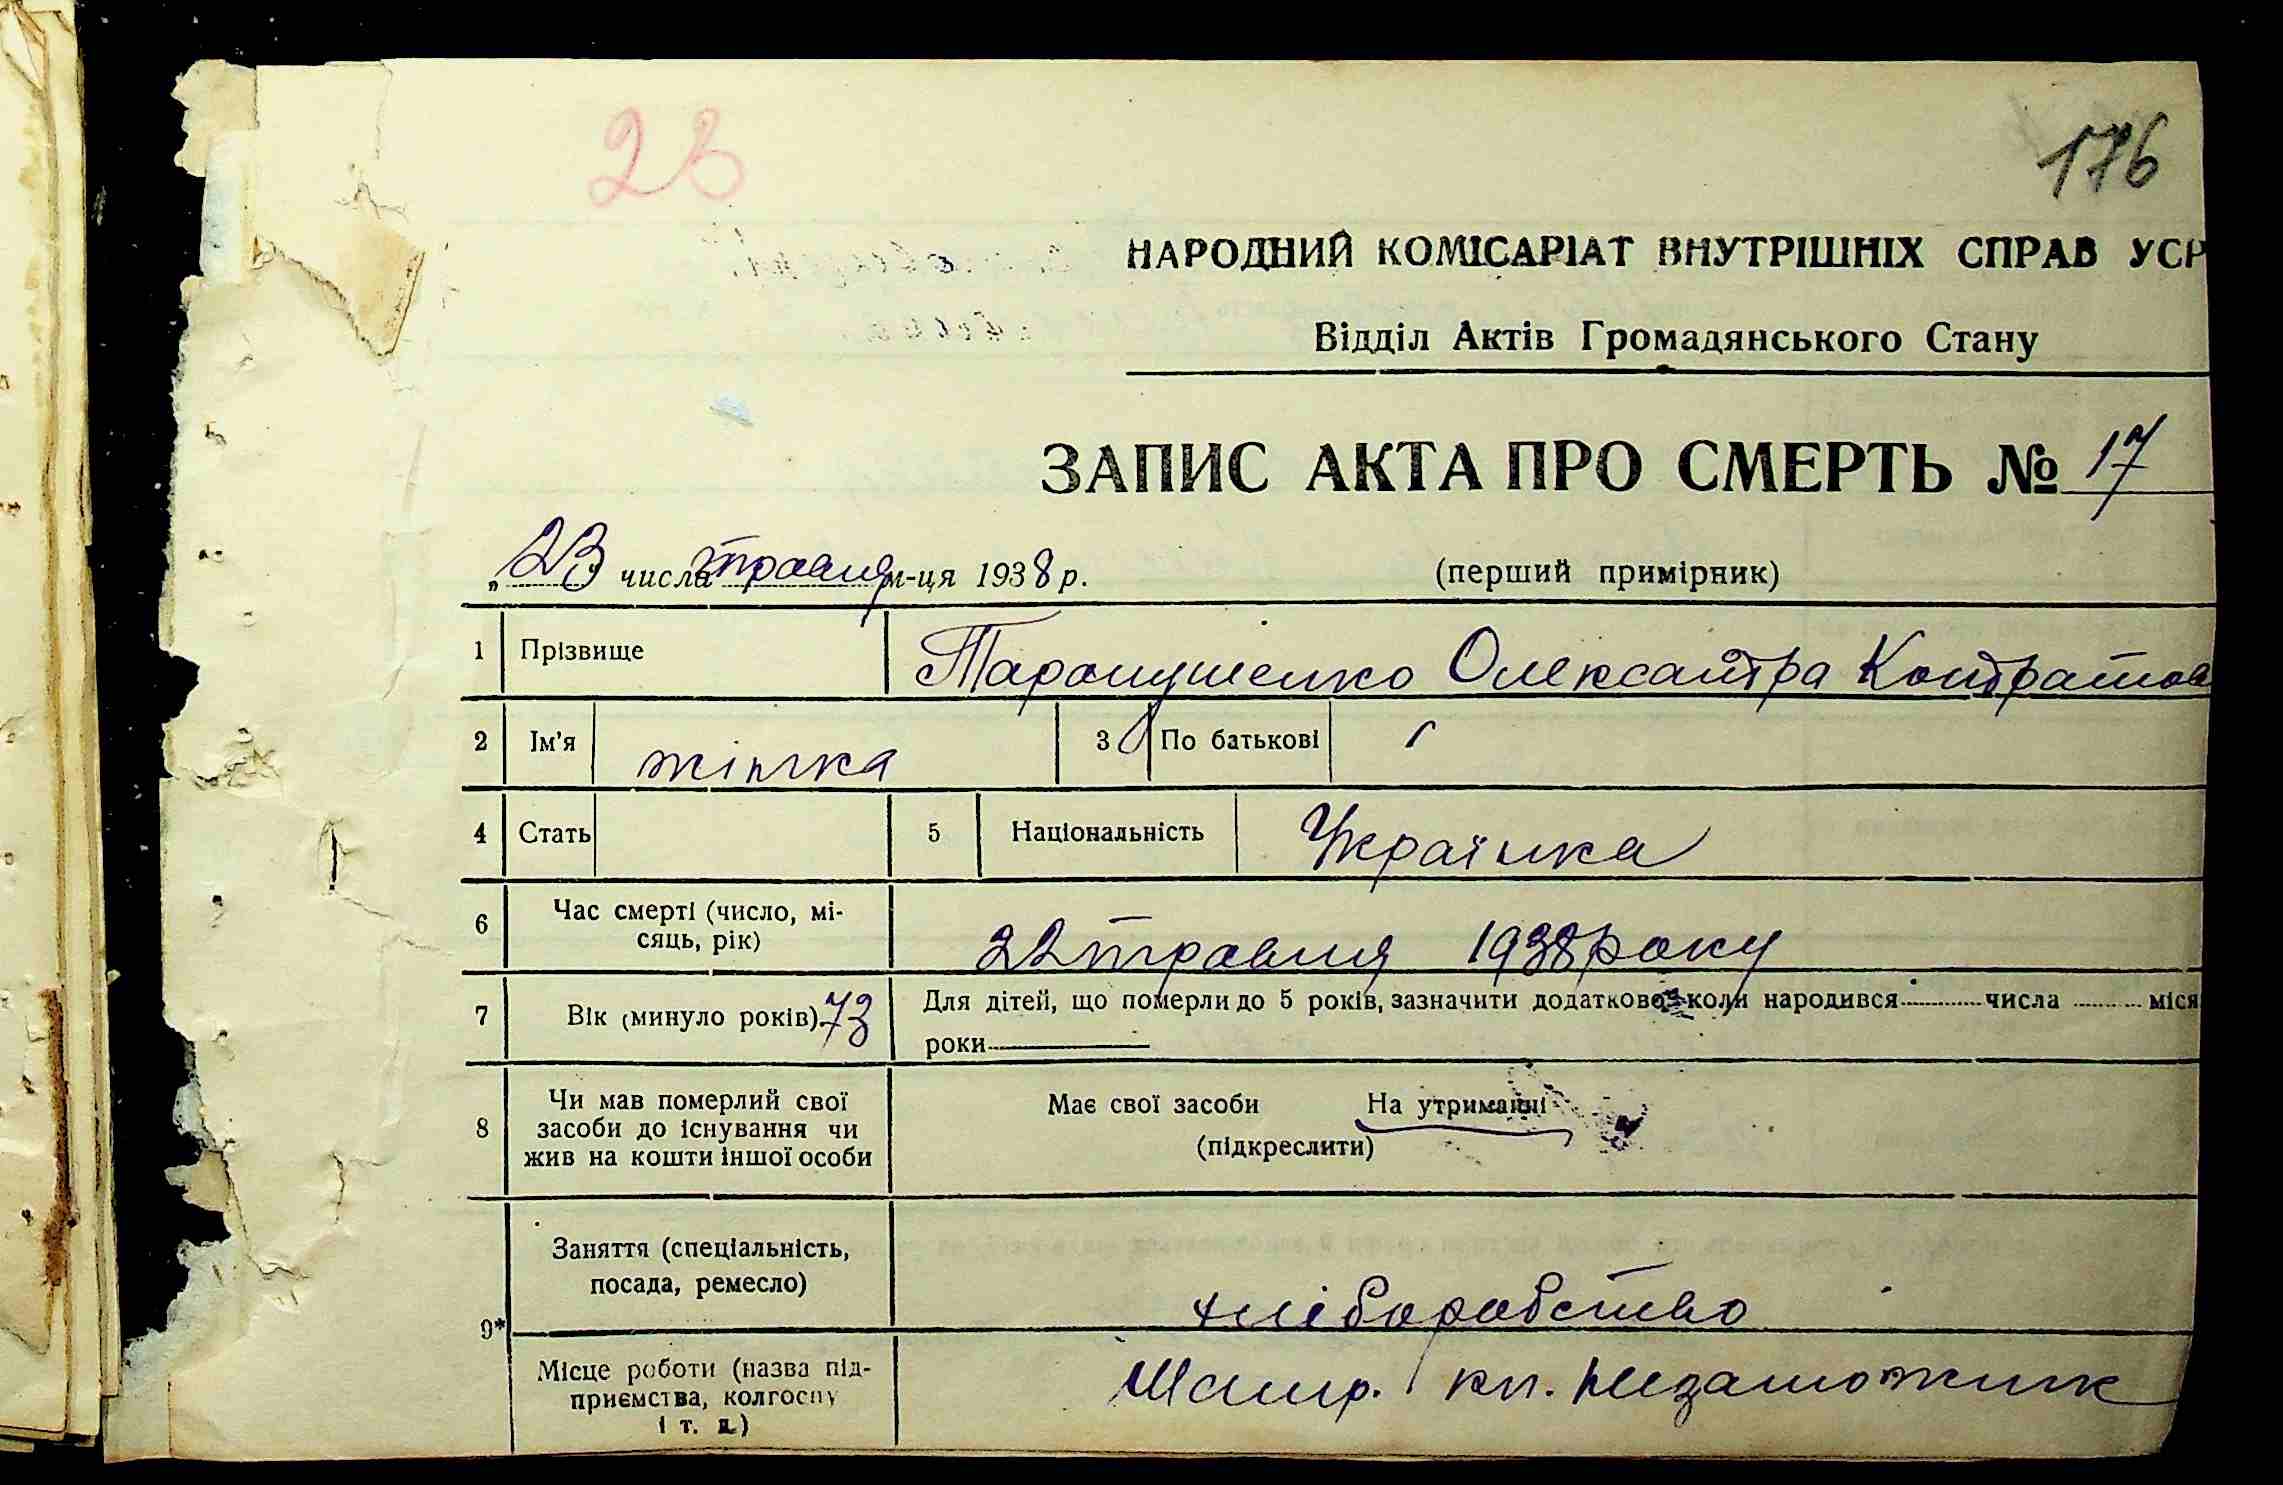 23
176
НАРОДНИЙ КОМІСАРІАТ ВНУТРІШНІХ СПРАВ УСР
Відділ Актів Громадянського Стану
ЗАПИС АКТА ПРО СМЕРТЬ № 17
„23" числа травня м-ця 1938 р. (перший примірник)
1 Прізвище Таранушенко Олександра Кондратов
2 Ім'я жінка 3 По батькові
4 Стать 5 Національність Українка
6 Час смерті (число, мі-
сяць, рік) 22 травня 1938 року
7 Вік (минуло років) 73 Для дітей, що померли до 5 років, зазначити додатково: коли народився числа міся
роки
8 Чи мав померлий свої
засоби до існування чи
жив на кошти іншої особи
Має свої засоби На утриманні
(підкреслити)
9* Заняття (спеціальність,
посада, ремесло) хліборобство
Місце роботи (назва під-
приємства, колгоспу
і т. д.) кл. Незаможник